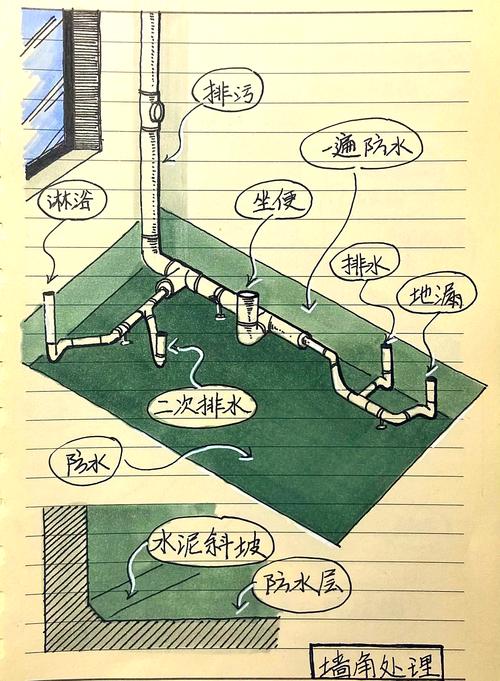 排污
一遍防水
淋浴
坐便
排水
地漏
二次排水
防水
水泥斜坡
防水层
墙角处理